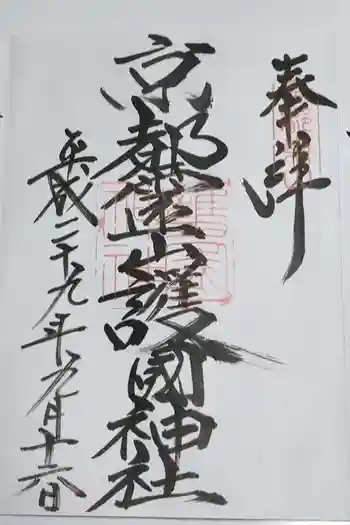 奉拝
京都霊山護國神社
平成二十九年月十六日